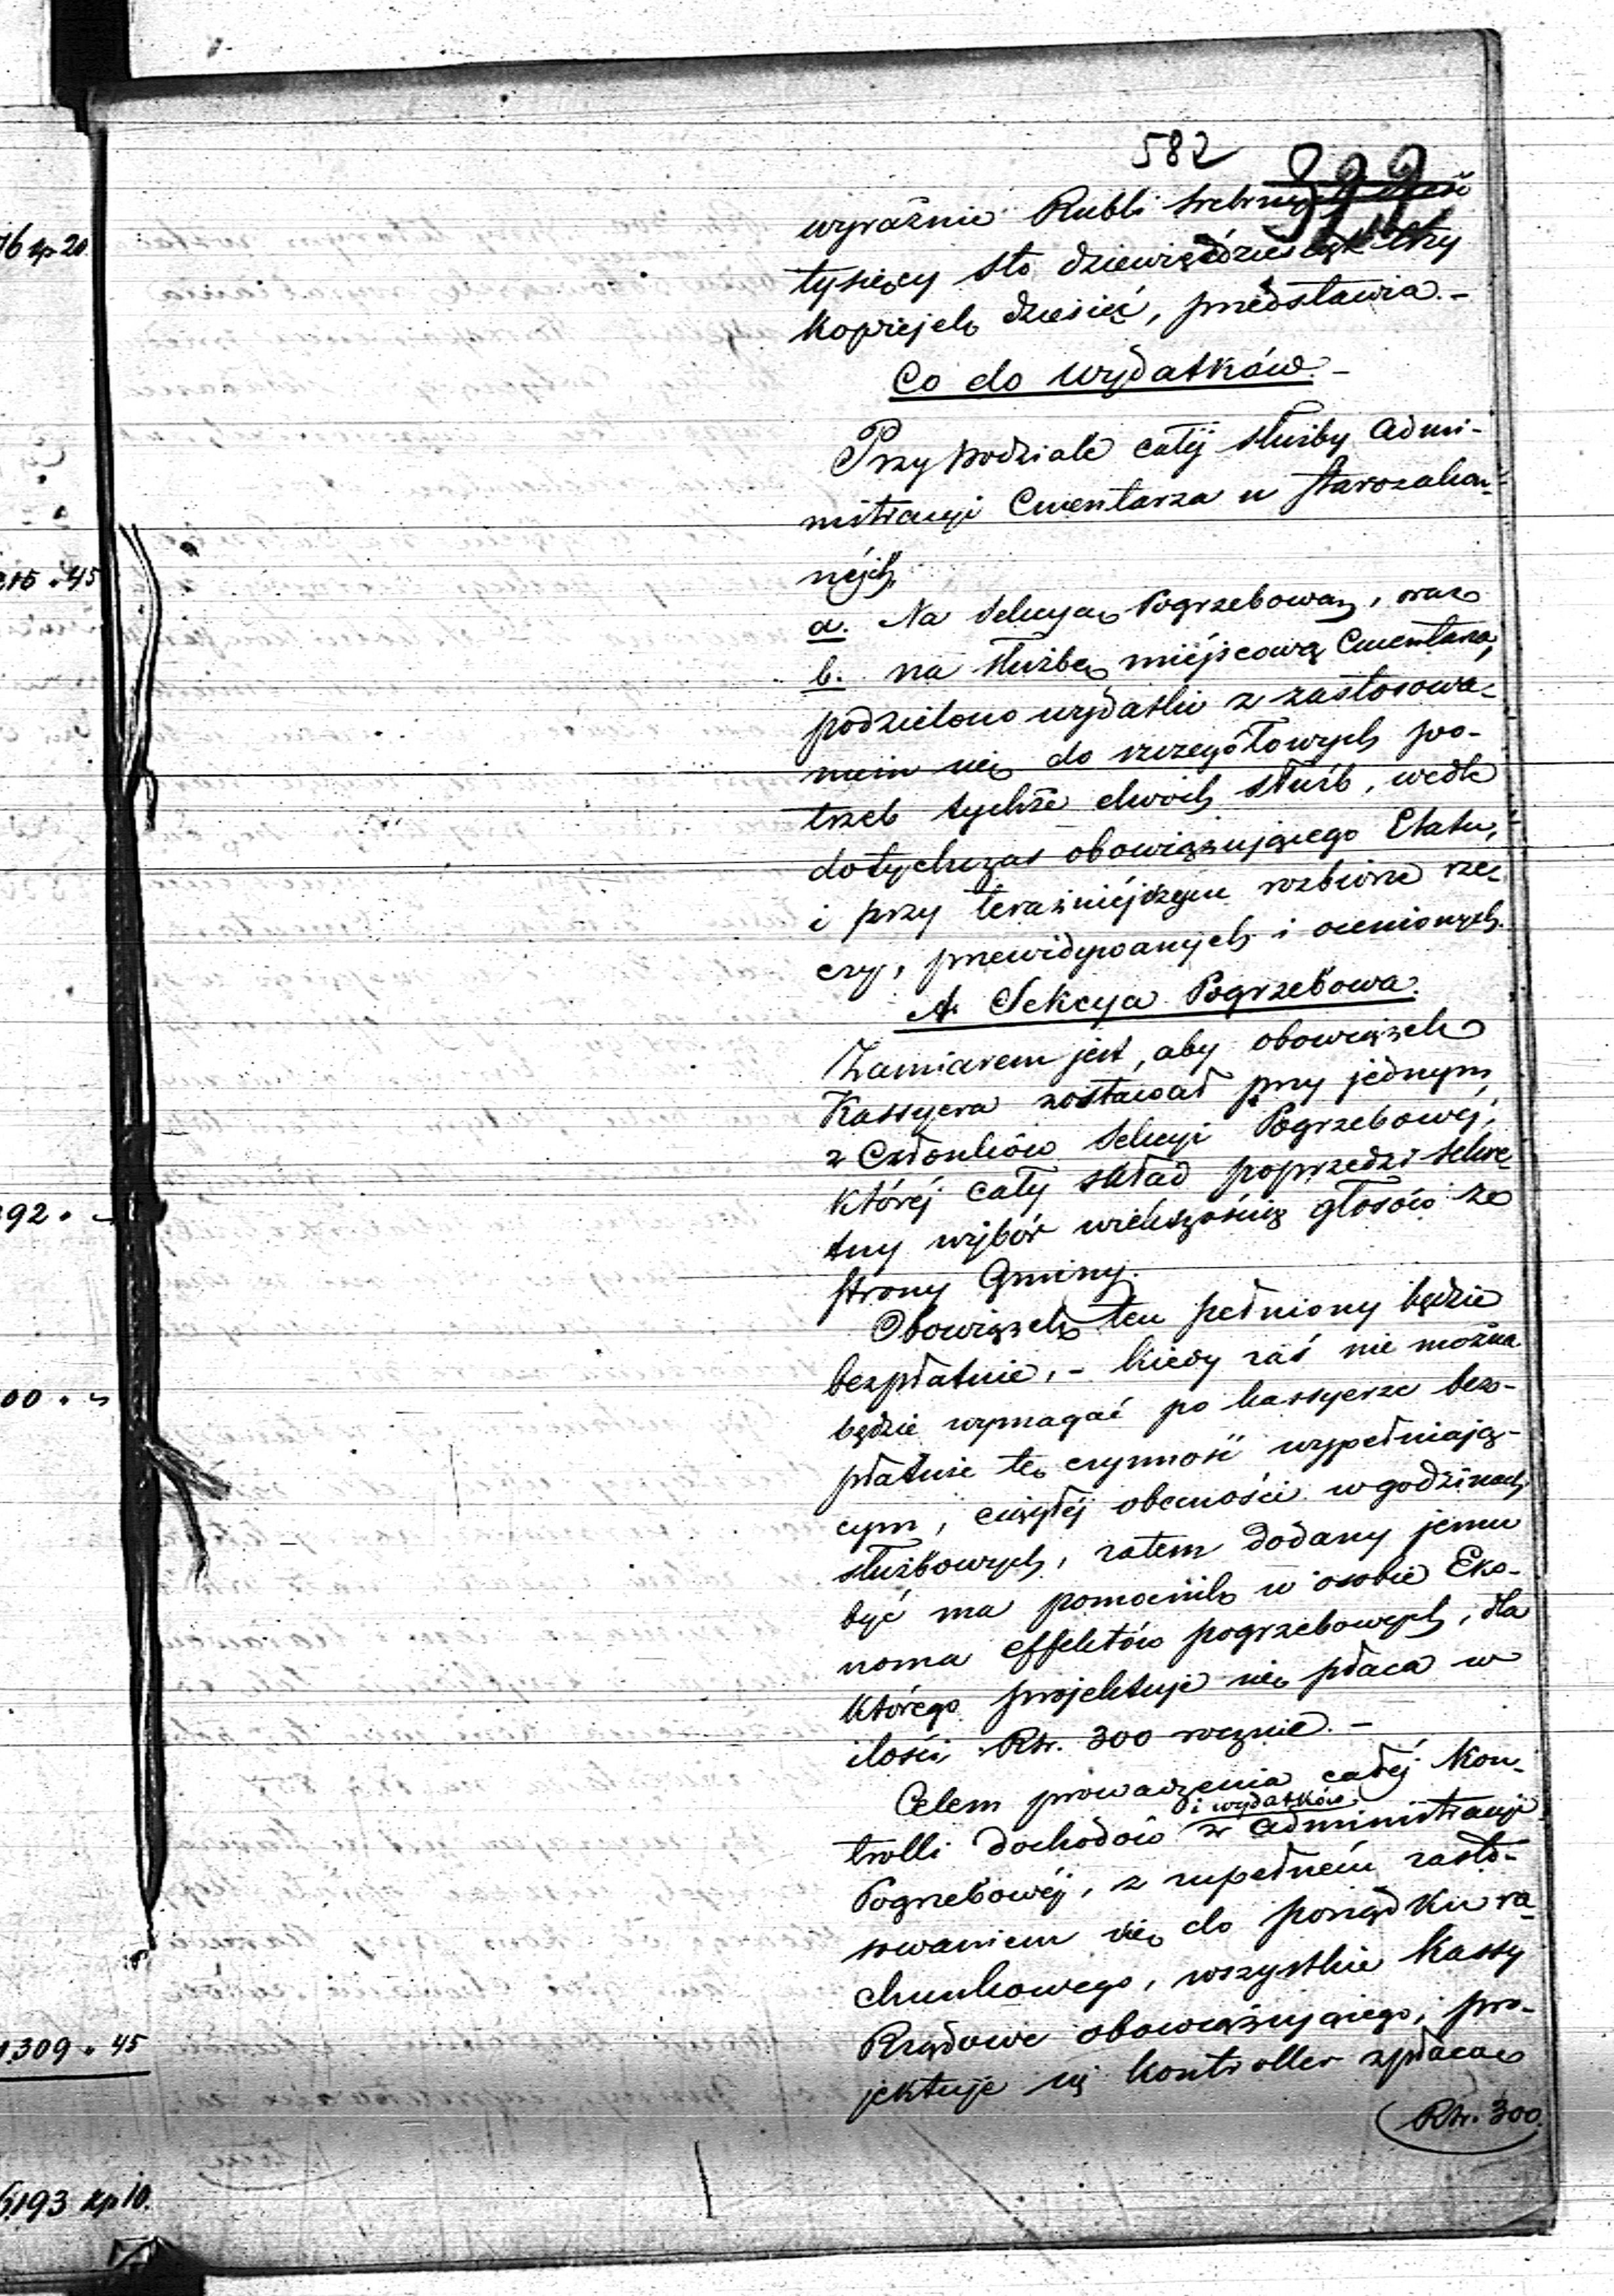 582
399
76 kp 20.
wyraźnie Rubli srebrnych sześć
tysięcy sto dziewięćdziesiąt trzy
kopiejek dziesięć, przedstawia.-
Co do wydatków.-
Przy podziale całéj służby Admi-
nistracyi Cmentarza u starozakon-
nych
215 . 45
a. Na Sekcyą Pogrzebową, oraz
b. na służbę miéjscową Cmentarza,
podzielono wydatki z zastosowa-
niem się do szczegółowych po-
trzeb tychże dwóch służb, wedle
dotychczas obowiązującego Etatu,
i przy teraźniéjszym rozbiorze rze-
czy, przewidywanych i ocenionych.
A. Sekcya Pogrzebowa.
Zamiarem jest, aby obowiązek
Kassyera zostawał przy jednym
z Członków Sekcyi Pogrzebowéj,
któréj cały skład poprzedzi sekre-
392 . -
tny wybór większością głosów ze
strony Gminy.
Obowiązek ten pełniony będzie
bezpłatnie, - kiedy zaś nie można
00 . -
będzie wymagać po kassyerze bez-
płatnie tę czynność wypełniają-
cym, ciągłéj obecności w godzinach
służbowych, zatem dodany jemu
być ma pomocnik w osobie Eko-
noma effektów pogrzebowych, dla
którego projektuje się płaca w
ilości Rsr. 300 rocznie.-
Celem prowadzenia całéj kon-
i wydatków
trolli dochodów w Administracyi
Pogrzebowéj, z zupełném zasto-
sowaniem się do porządku ra-
chunkowego, wszystkie Kassy
Rządowe obowiązującego, pro-
1.309 . 45
jektuje się kontroller z płacą
Rsr. 300.
6,193 kp 10.